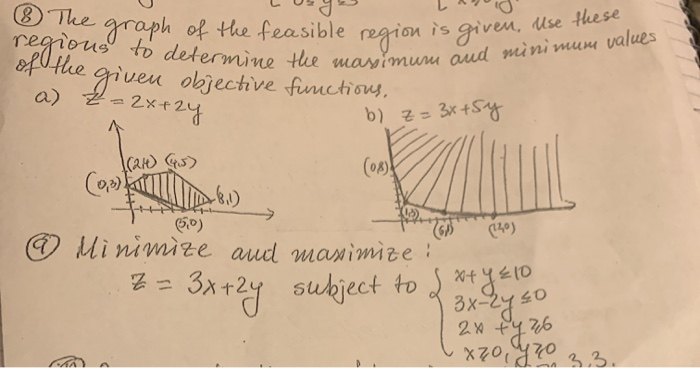 ⑧ The graph of the feasible region is given. Use these
regions to determine the maximum and minimum values
of the given objective functions.
a) z = 2x+2y
b) z = 3x+5y
(2,4) (4,5)
(0,3)
(8,1)
(5,0)
(0,8)
(1,3)
(12,0)
⑨ Minimize and maximize:
z = 3x+2y subject to
x+y≤10
3x-2y≤0
2x+y≥6
x≥0, y≥0
3.3.